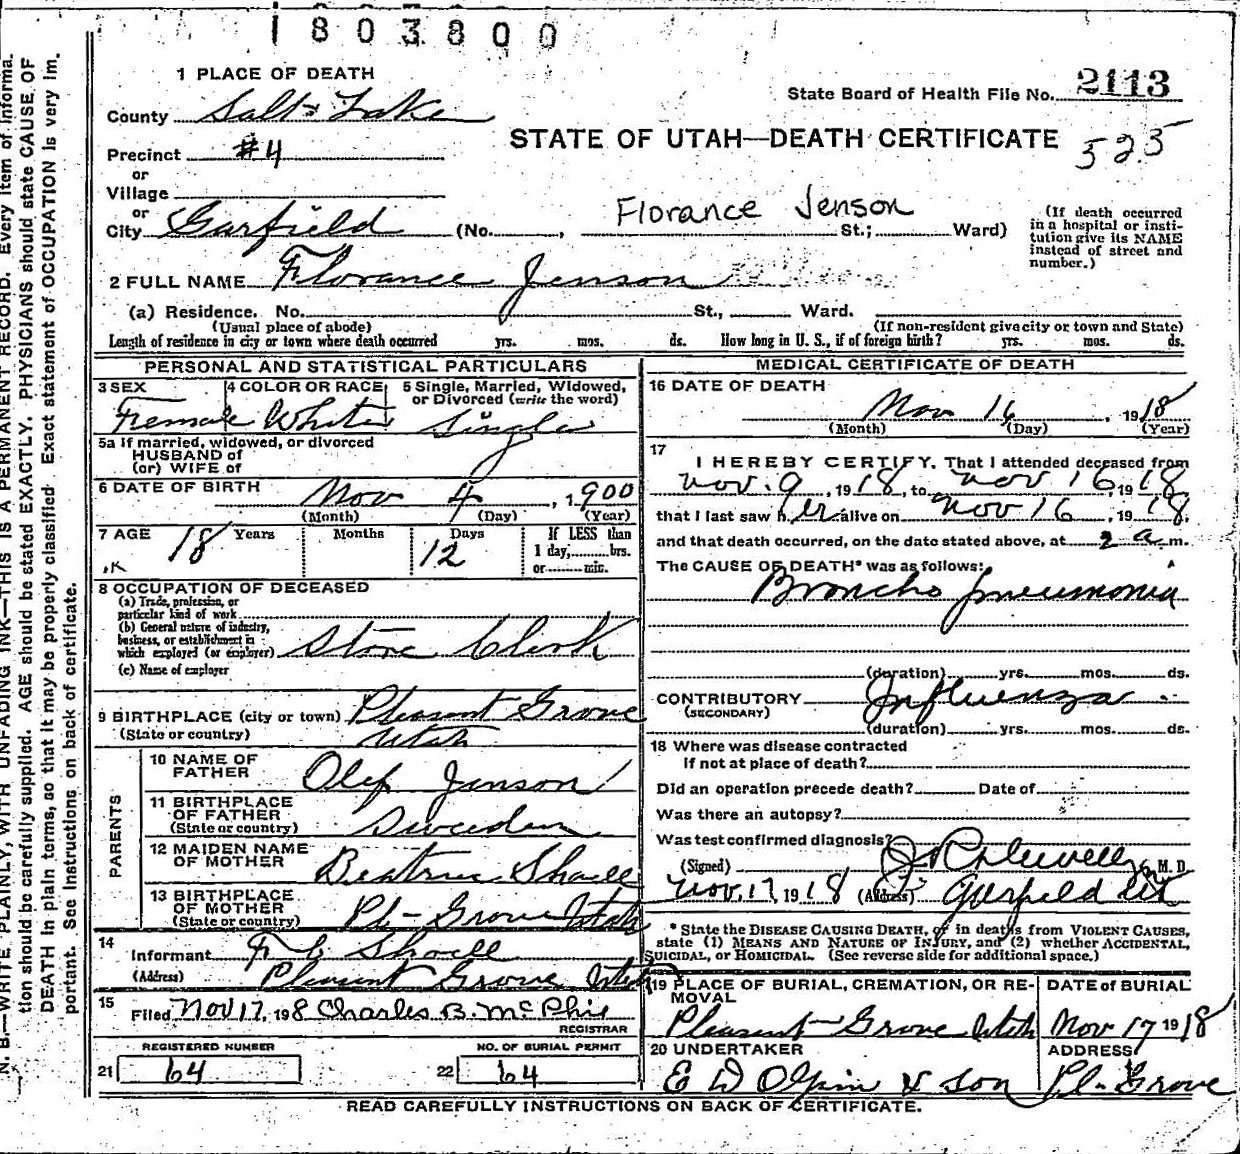 1803800
1 PLACE OF DEATH
State Board of Health File No. 2113
County Salt Lake
STATE OF UTAH—DEATH CERTIFICATE 525
Precinct #4
or
Village
or
City Garfield (No. , St.; Ward)
Florance Jenson
(If death occurred in a hospital or insti-
tution give its NAME instead of street and number.)
2 FULL NAME Florance Jenson
(a) Residence. No. St., Ward.
(Usual place of abode) (If non-resident give city or town and State)
Length of residence in city or town where death occurred yrs. mos. ds. How long in U. S., if of foreign birth? yrs. mos. ds.
PERSONAL AND STATISTICAL PARTICULARS
3 SEX 4 COLOR OR RACE 5 Single, Married, Widowed,
or Divorced (write the word)
Female White Single
5a If married, widowed, or divorced
HUSBAND of
(or) WIFE of
6 DATE OF BIRTH Nov 4, 1900
(Month) (Day) (Year)
7 AGE 18 Years Months 12 Days If LESS than
1 day, hrs.
or min.
8 OCCUPATION OF DECEASED
(a) Trade, profession, or
particular kind of work
(b) General nature of industry,
business, or establishment in
which employed (or employer) Store Clerk
(c) Name of employer
9 BIRTHPLACE (city or town) Pleasant Grove
(State or country) Utah
PARENTS
10 NAME OF
FATHER Olef Jenson
11 BIRTHPLACE
OF FATHER
(State or country) Sweeden
12 MAIDEN NAME
OF MOTHER Beatrice Shoell
13 BIRTHPLACE
OF MOTHER
(State or country) Pl- Grove Utah
14
Informant Shoell
(Address) Pleasant Grove Utah
15
Filed Nov 17, 1918 Charles B. McPhie
REGISTRAR
REGISTERED NUMBER NO. OF BURIAL PERMIT
21 64 22 64
MEDICAL CERTIFICATE OF DEATH
16 DATE OF DEATH
Nov 16, 1918
(Month) (Day) (Year)
17
I HEREBY CERTIFY, That I attended deceased from
Nov. 9, 1918, to Nov 16, 1918
that I last saw her alive on Nov 16, 1918.
and that death occurred, on the date stated above, at 2 a m.
The CAUSE OF DEATH* was as follows:
Broncho pneumonia
(duration) yrs. mos. ds.
CONTRIBUTORY Influenza
(SECONDARY)
(duration) yrs. mos. ds.
18 Where was disease contracted
If not at place of death?
Did an operation precede death? Date of
Was there an autopsy?
Was test confirmed diagnosis?
(Signed) M. D.
Nov. 17, 1918 (Address) Garfield Ut
* State the DISEASE CAUSING DEATH, or in deaths from VIOLENT CAUSES,
state (1) MEANS AND NATURE OF INJURY, and (2) whether ACCIDENTAL,
SUICIDAL, or HOMICIDAL. (See reverse side for additional space.)
19 PLACE OF BURIAL, CREMATION, OR RE-
MOVAL DATE of BURIAL
Pleasant Grove Utah Nov 17 1918
20 UNDERTAKER ADDRESS
E D Olpin & Son Pl- Grove
READ CAREFULLY INSTRUCTIONS ON BACK OF CERTIFICATE.
N. B.—WRITE PLAINLY, WITH UNFADING INK—THIS IS A PERMANENT RECORD. Every item of informa-
tion should be carefully supplied. AGE should be stated EXACTLY. PHYSICIANS should state CAUSE OF
DEATH in plain terms, so that it may be properly classified. Exact statement of OCCUPATION is very im-
portant. See Instructions on back of certificate.